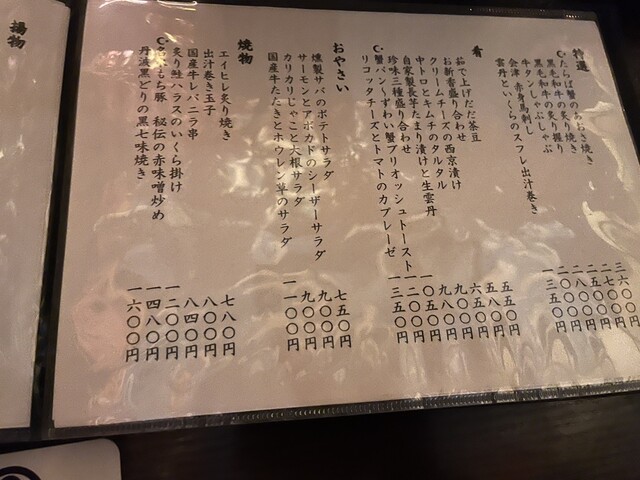 特選
たらば蟹のあおさ焼き
黒毛和牛の炙り握り
黒毛和牛の炙り焼き
牛タンしゃぶしゃぶ
会津 赤身馬刺し
雲丹といくらのスフレ出汁巻き
肴
茹で上げだだ茶豆 五五〇円
お新香盛り合わせ 五八〇円
クリームチーズの西京漬け 六五〇円
中トロとキムチのタルタル 九〇〇円
自家製長芋たまり漬けと生雲丹 九八〇円
珍味三種盛り合わせ 一〇五〇円
蟹パン〜ずわい蟹ブリオッシュトースト 一二〇〇円
リコッタチーズとトマトのカプレーゼ 一三五〇円
おやさい
燻製サバのポテトサラダ 七五〇円
サーモンとアボカドのシーザーサラダ 九〇〇円
カリカリじゃこと大根サラダ 九〇〇円
国産牛たたきとホウレン草のサラダ 一一〇〇円
焼物
エイヒレ炙り焼き 七八〇円
出汁巻き玉子 八〇〇円
国産牛レバニラ串 八四〇円
炙り鮭ハラスのいくら掛け 一二〇〇円
もち豚 秘伝の赤味噌炒め 一四八〇円
丹波黒どりの黒七味焼き 一六〇〇円
揚物